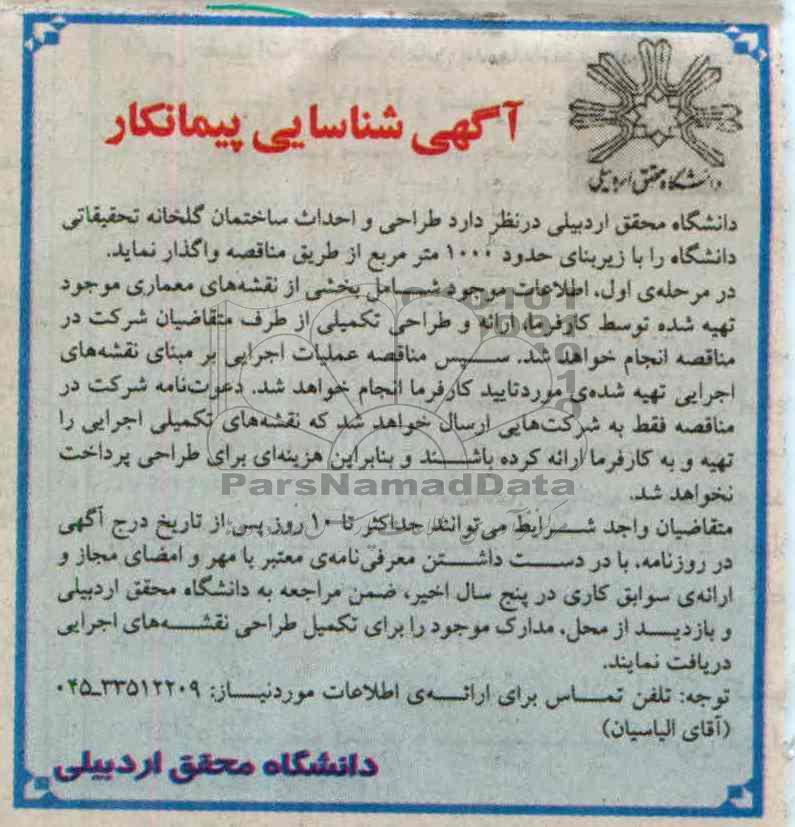 دانشگاه محقق اردبیلی
آگهی شناسایی پیمانکار
دانشگاه محقق اردبیلی درنظر دارد طراحی و احداث ساختمان گلخانه تحقیقاتی
دانشگاه را با زیربنای حدود ۱۰۰۰ متر مربع از طریق مناقصه واگذار نماید.
در مرحله‌ی اول، اطلاعات موجود شامل بخشی از نقشه‌های معماری موجود
تهیه شده توسط کارفرما، ارائه و طراحی تکمیلی از طرف متقاضیان شرکت در
مناقصه انجام خواهد شد. سپس مناقصه عملیات اجرایی بر مبنای نقشه‌های
اجرایی تهیه شده‌ی موردتایید کارفرما انجام خواهد شد. دعوت‌نامه شرکت در
مناقصه فقط به شرکت‌هایی ارسال خواهد شد که نقشه‌های تکمیلی اجرایی را
تهیه و به کارفرما ارائه کرده باشند و بنابراین هزینه‌ای برای طراحی پرداخت
نخواهد شد.
ParsNamadData
متقاضیان واجد شرایط می‌توانند حداکثر تا ۱۰ روز پس از تاریخ درج آگهی
در روزنامه، با در دست داشتن معرفی‌نامه‌ی معتبر با مهر و امضای مجاز و
ارائه‌ی سوابق کاری در پنج سال اخیر، ضمن مراجعه به دانشگاه محقق اردبیلی
و بازدید از محل، مدارک موجود را برای تکمیل طراحی نقشه‌های اجرایی
دریافت نمایند.
توجه: تلفن تماس برای ارائه‌ی اطلاعات موردنیاز: ۳۳۵۱۲۲۰۹-۰۴۵
(آقای الیاسیان)
دانشگاه محقق اردبیلی